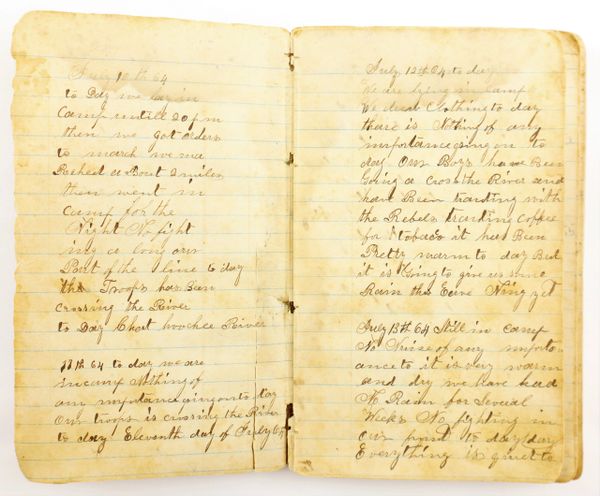 July 10th 64
to Day we lay in
Camp untill 20 pm
then we got orders
to march we ma
Rcheed a Bout 2 miles
then went in
camp for the
Night No fight
ing a long our
Part of the line to day
the Troops has Been
crossing the River
to Day Chat woochee River
11th 64 to day we are
in camp Nothing of
any importance going on to day
Our troops is crossing the River
to day Eleventh day of July 64
July 12th 64 to day
We are lying in camp
We drew Clothing to day
theare is Nothing of any
importance going on to
day Our Boys have Been
Going a Cross the River and
have Been traiding with
the Rebels traiding coffee
for tobaco it has Been
Pretty warm to day But
it is Going to give us some
Rain this Eave Ning yet
July 13th 64 Still in camp
No Nuise of any importa
ance to it is very warm
and dry we have had
No Rain for Several
Weeks No fighting in
Our front to day
Everything is quiet to